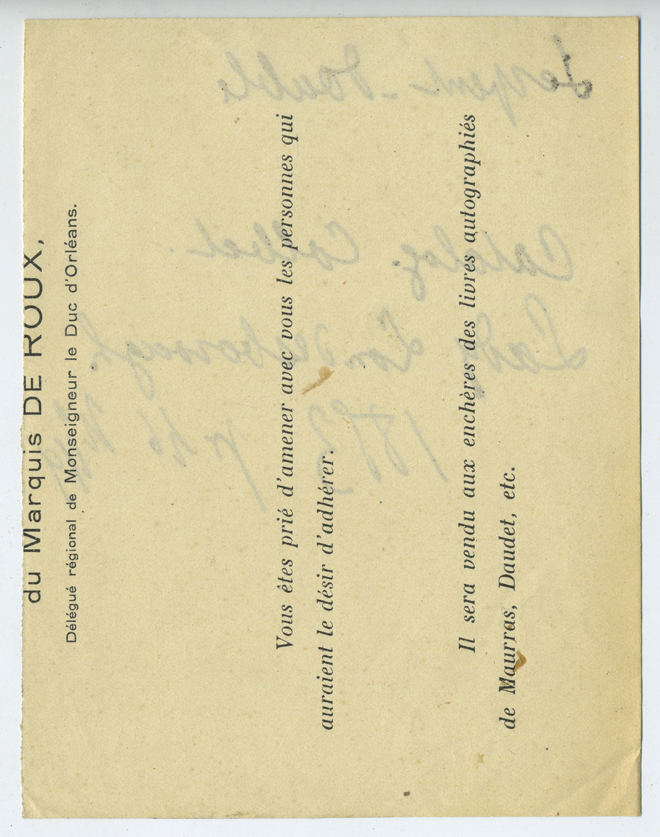 du Marquis DE ROUX,
Délégué régional de Monseigneur le Duc d'Orléans.
Vous êtes prié d'amener avec vous les personnes qui
auraient le désir d'adhérer.
Il sera vendu aux enchères des livres autographiés
de Maurras, Daudet, etc.
Serpent-Double
Catalog. Collect.
Lady Londesborough
1853